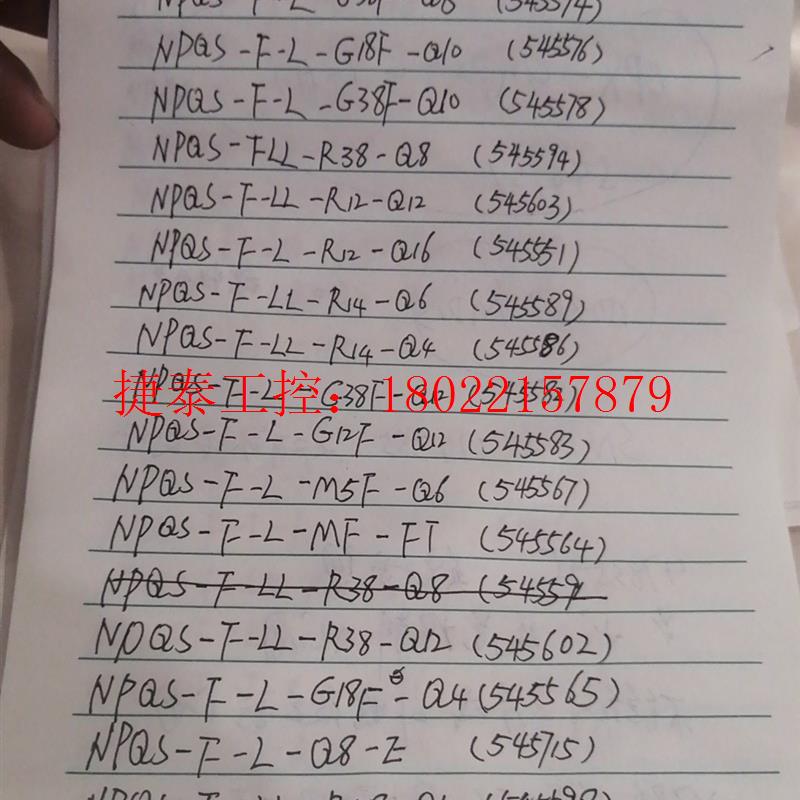 NPQS-F-L-G18F-Q10 (545576)
NPQS-F-L-G38F-Q10 (545578)
NPQS-F-LL-R38-Q8 (545594)
NPQS-F-LL-R12-Q12 (545603)
NPQS-F-L-R12-Q16 (545551)
NPQS-F-LL-R14-Q6 (545589)
NPQS-F-LL-R14-Q4 (545586)
NPQS-F-L-G38F-Q12 (545582)
捷泰工控：18022157879
NPQS-F-L-G12F-Q12 (545583)
NPQS-F-L-M5F-Q6 (545567)
NPQS-F-L-MF-FT (545564)
NPQS-F-LL-R38-Q8 (54559
NPQS-F-LL-R38-Q12 (545602)
NPQS-F-L-G18F-Q4 (545565)
NPQS-F-L-Q8-E (545715)